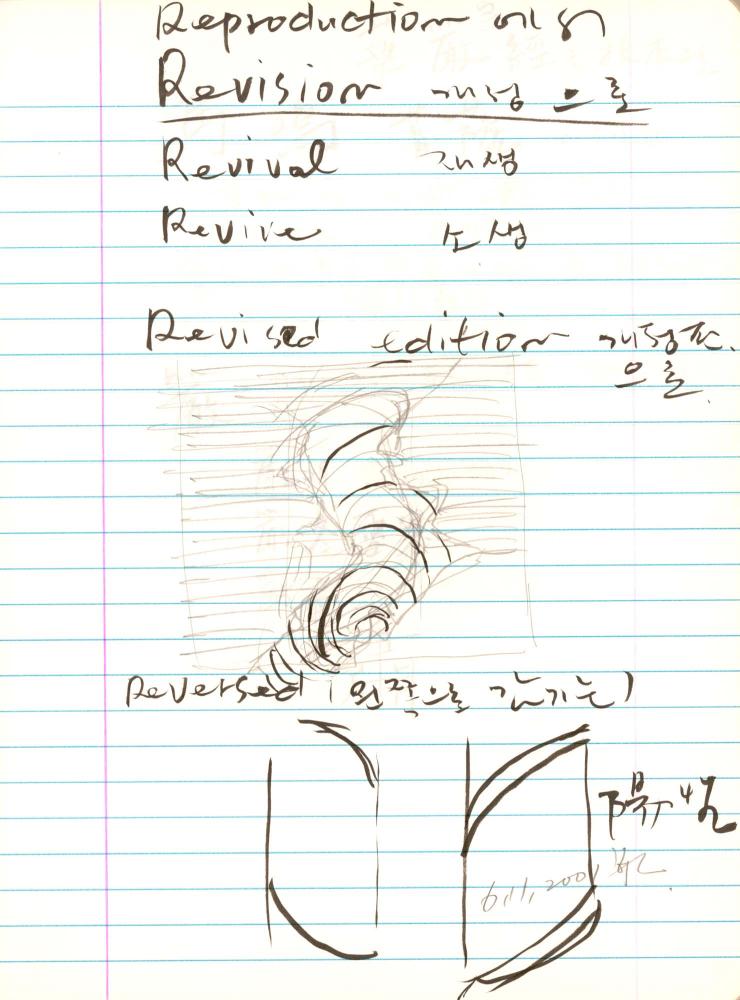 Reproduction 에서
Revision 개정 으로
Revival 재생
Revive 소생
Revised edition 개정판.
으로.
Reversed (왼쪽으로 감기는)
陽
6.11, 2001